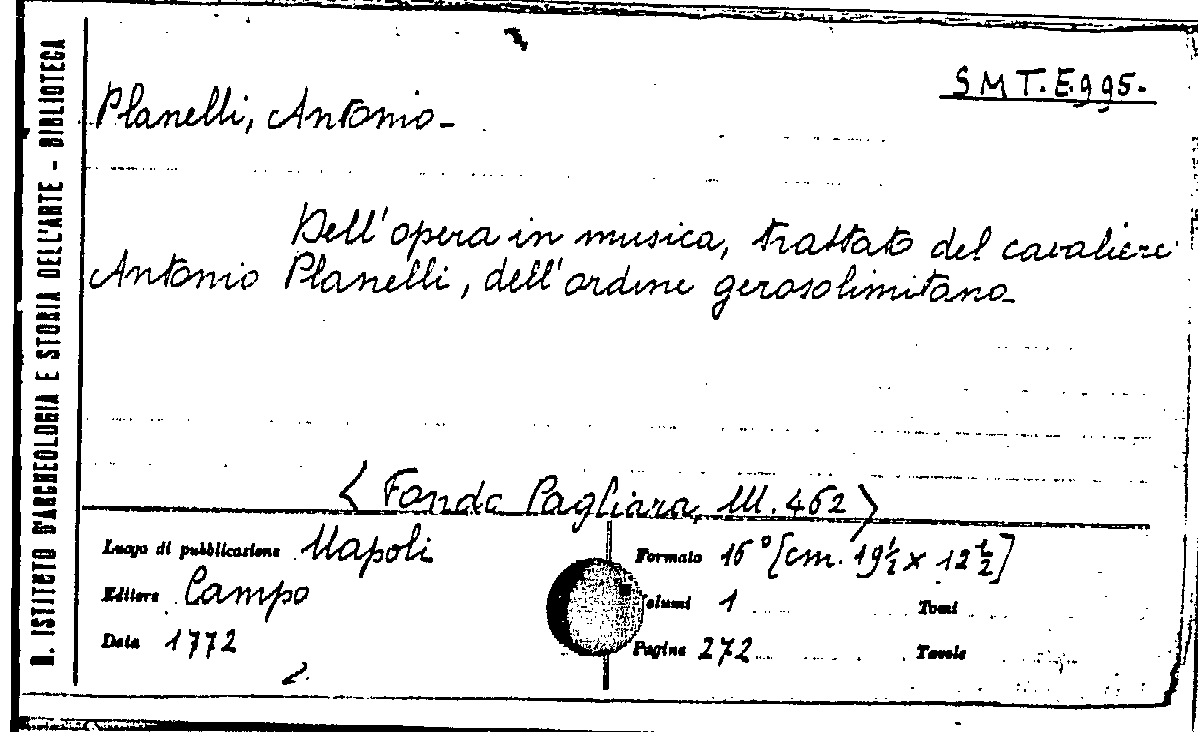 S M T. E. 995.
Planelli, Antonio -
Dell'opera in musica, trattato del cavaliere
Antonio Planelli, dell'ordine gerosolimitano
< Fondo Pagliara, M. 462 >
Luogo di pubblicazione Napoli
Editore Campo
Data 1772
Formato 16° [cm. 19½ x 12½]
Volumi 1 Tomi
Pagine 272 Tavole
R. ISTITUTO D'ARCHEOLOGIA E STORIA DELL'ARTE - BIBLIOTECA